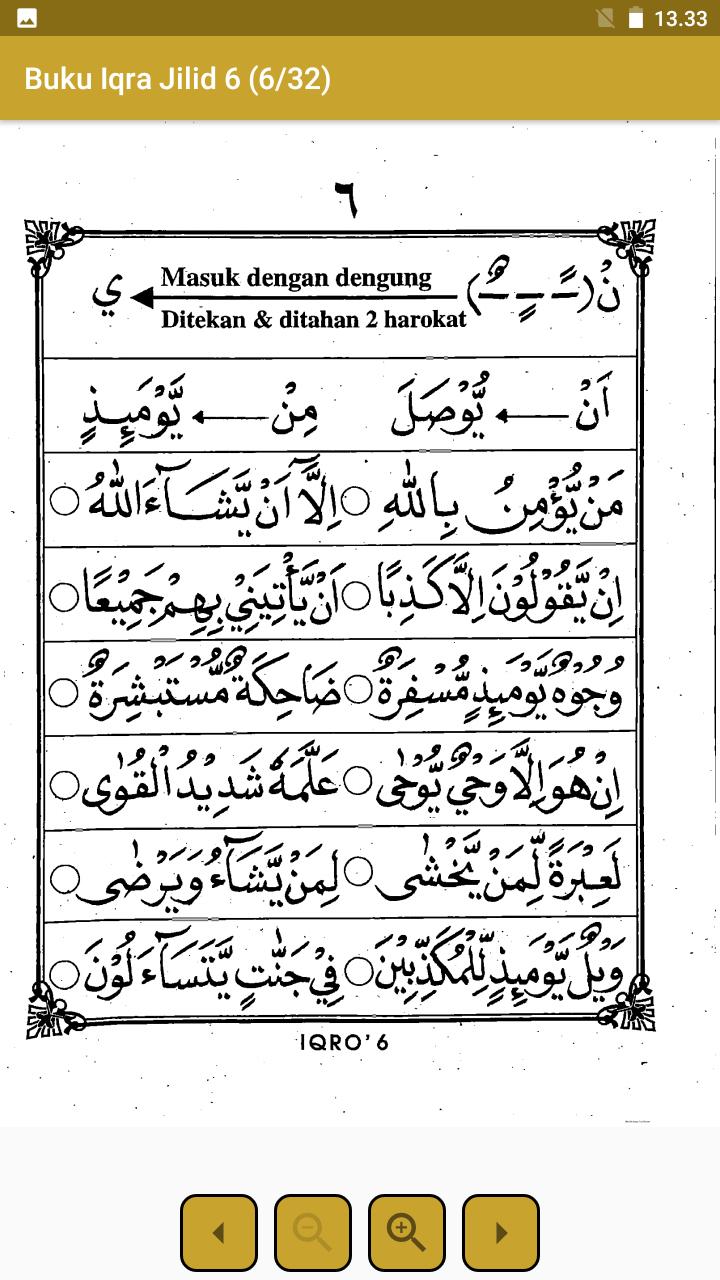 13.33
Buku Iqra Jilid 6 (6/32)
٦
نْ (ـًـ ـٍـ ـٌـ) Masuk dengan dengung ي
Ditekan & ditahan 2 harokat
اَنْ يُّوْصَلَ مِنْ يَّوْمَئِذٍ
مَنْ يُّؤْمِنُ بِاللّٰهِ ○ اِلَّآ اَنْ يَّشَآءَ اللّٰهُ ○
اِنْ يَّقُوْلُوْنَ اِلَّا كَذِبًا ○ اَنْ يَّأْتِيَنِيْ بِهِمْ جَمِيْعًا ○
وُجُوْهٌ يَّوْمَئِذٍ مُّسْفِرَةٌ ○ ضَاحِكَةٌ مُّسْتَبْشِرَةٌ ○
اِنْ هُوَ اِلَّا وَحْيٌ يُّوْحٰى ○ عَلَّمَهٗ شَدِيْدُ الْقُوٰى ○
لَعِبْرَةً لِّمَنْ يَّخْشٰى ○ لِمَنْ يَّشَآءُ وَيَرْضٰى ○
وَيْلٌ يَّوْمَئِذٍ لِّلْمُكَذِّبِيْنَ ○ فِيْ جَنّٰتٍ يَّتَسَآءَلُوْنَ ○
IQRO' 6